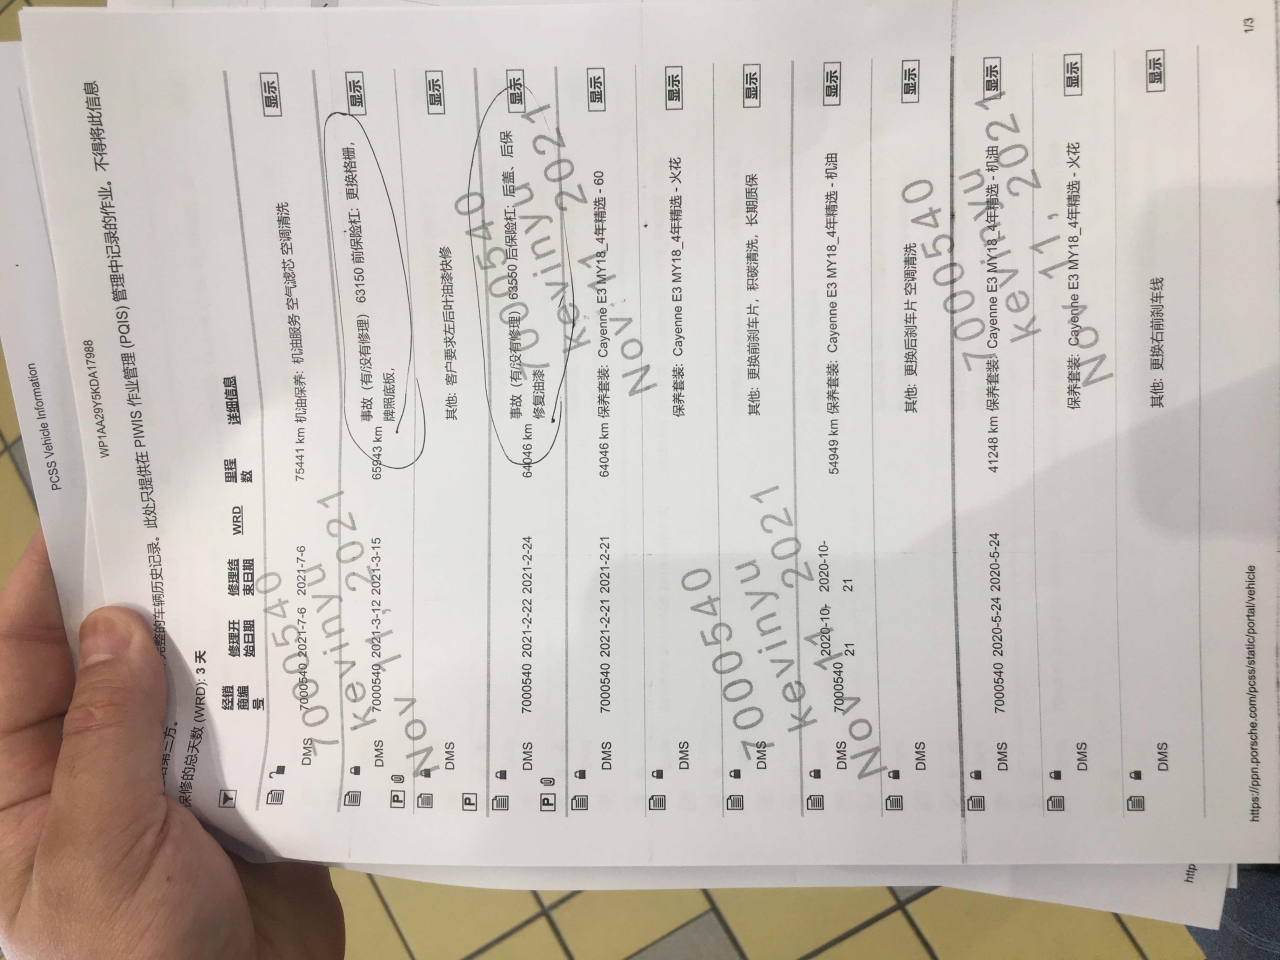 PCSS Vehicle Information
WP1AA29Y5KDA17988
完整的车辆历史记录。此处只提供在 PIWIS 作业管理 (PQIS) 管理中记录的作业。不得将此信息
第三方。
保修的总天数 (WRD): 3 天
经销商编号 修理开始日期 修理结束日期 WRD 里程数 详细信息
DMS 7000540 2021-7-6 2021-7-6 75441 km 机油保养: 机油服务 空气滤芯 空调清洗 显示
DMS 7000540 2021-3-12 2021-3-15 65943 km 事故 (有/没有修理) 63150 前保险杠: 更换格栅, 显示
牌照底板,
P
DMS 其他: 客户要求左后叶油漆快修 显示
P
DMS 7000540 2021-2-22 2021-2-24 64046 km 事故 (有/没有修理) 63550 后保险杠: 后盖、后保 显示
修复油漆
P
DMS 7000540 2021-2-21 2021-2-21 64046 km 保养套装: Cayenne E3 MY18_4年精选 - 60 显示
DMS 保养套装: Cayenne E3 MY18_4年精选 - 火花 显示
DMS 其他: 更换前刹车片, 积碳清洗, 长期质保 显示
DMS 7000540 2020-10-21 2020-10-21 54949 km 保养套装: Cayenne E3 MY18_4年精选 - 机油 显示
DMS 其他: 更换后刹车片 空调清洗 显示
DMS 7000540 2020-5-24 2020-5-24 41248 km 保养套装: Cayenne E3 MY18_4年精选 - 机油 显示
DMS 保养套装: Cayenne E3 MY18_4年精选 - 火花 显示
DMS 其他: 更换右前刹车线 显示
7000540
kevinyu
Nov 11, 2021
7000540
kevinyu
Nov 11, 2021
7000540
kevinyu
Nov 11, 2021
7000540
kevinyu
Nov 11, 2021
https://ppn.porsche.com/pcss/static/portal/vehicle
1/3
http